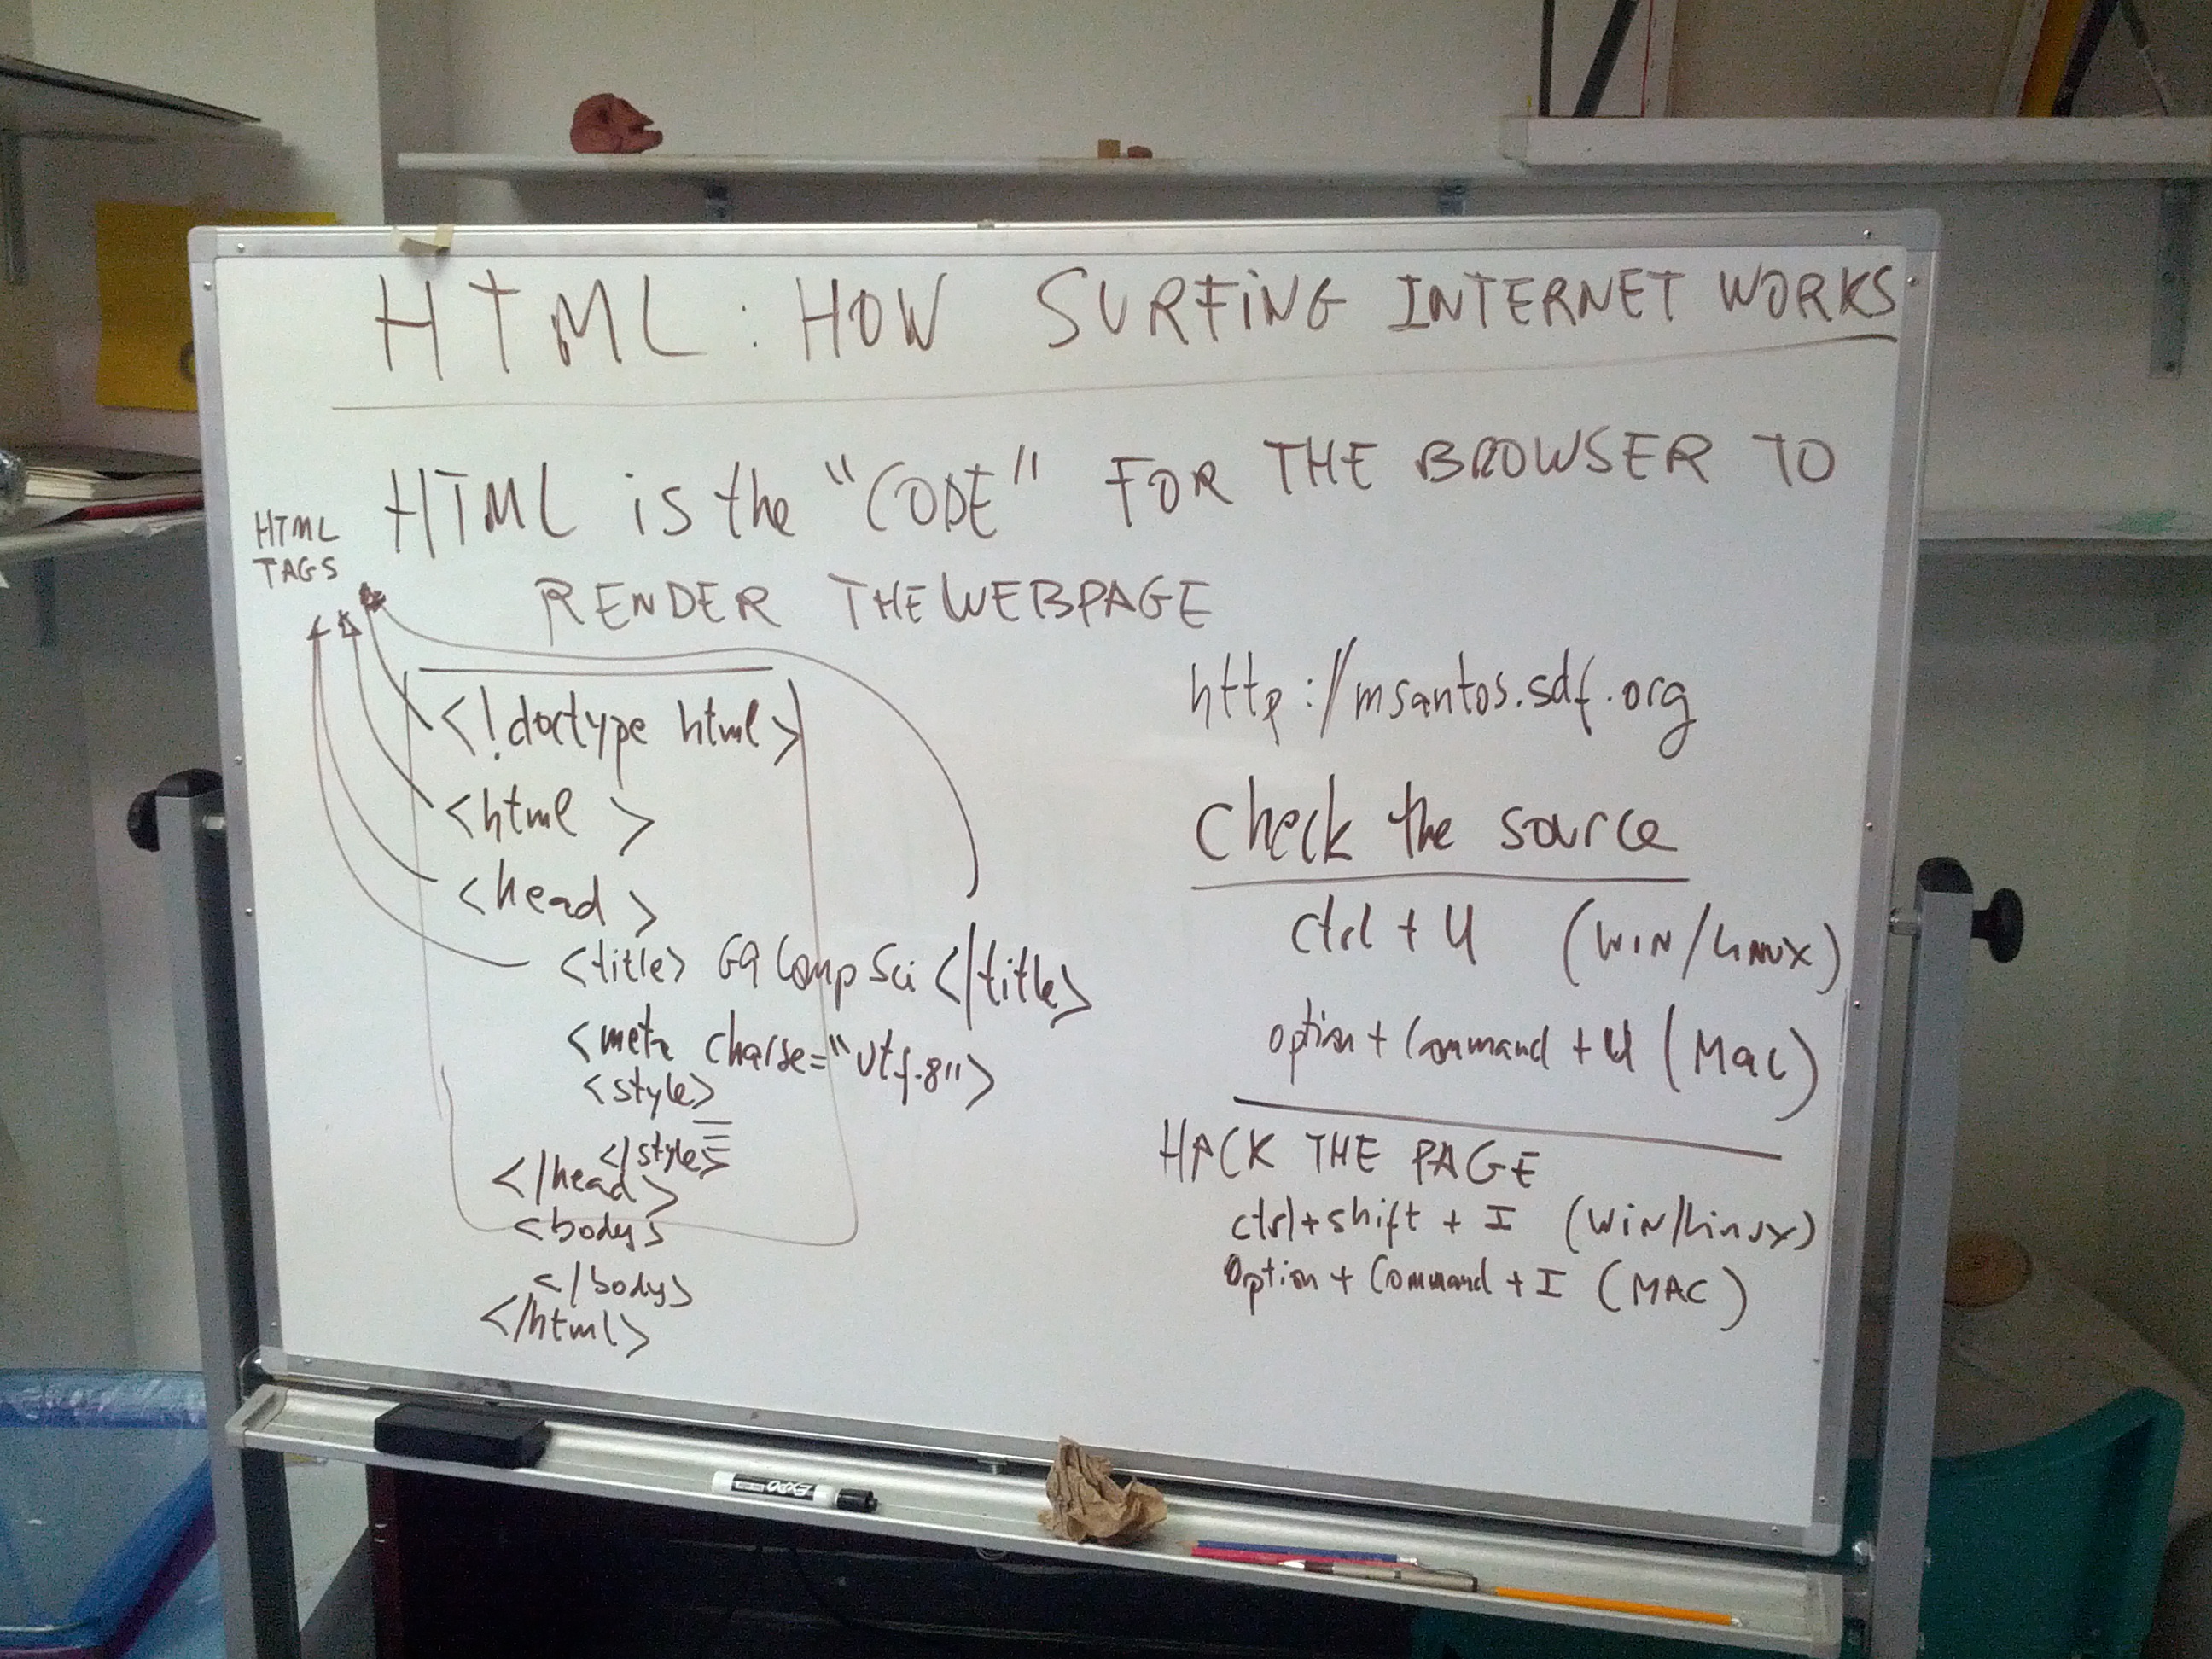 HTML : HOW SURFING INTERNET WORKS
HTML is the "CODE" FOR THE BROWSER TO
RENDER THE WEBPAGE
HTML
TAGS
<!doctype html>
<html >
<head >
<title> G9 Comp Sci </title>
<meta charse="utf-8">
<style>
</style>
</head>
<body>
</body>
</html>
http://msantos.sdf.org
Check the source
ctrl + U (WIN/LINUX)
option + Command + U (Mac)
HACK THE PAGE
ctrl + shift + I (WIN/Linux)
Option + Command + I (MAC)
EXPO